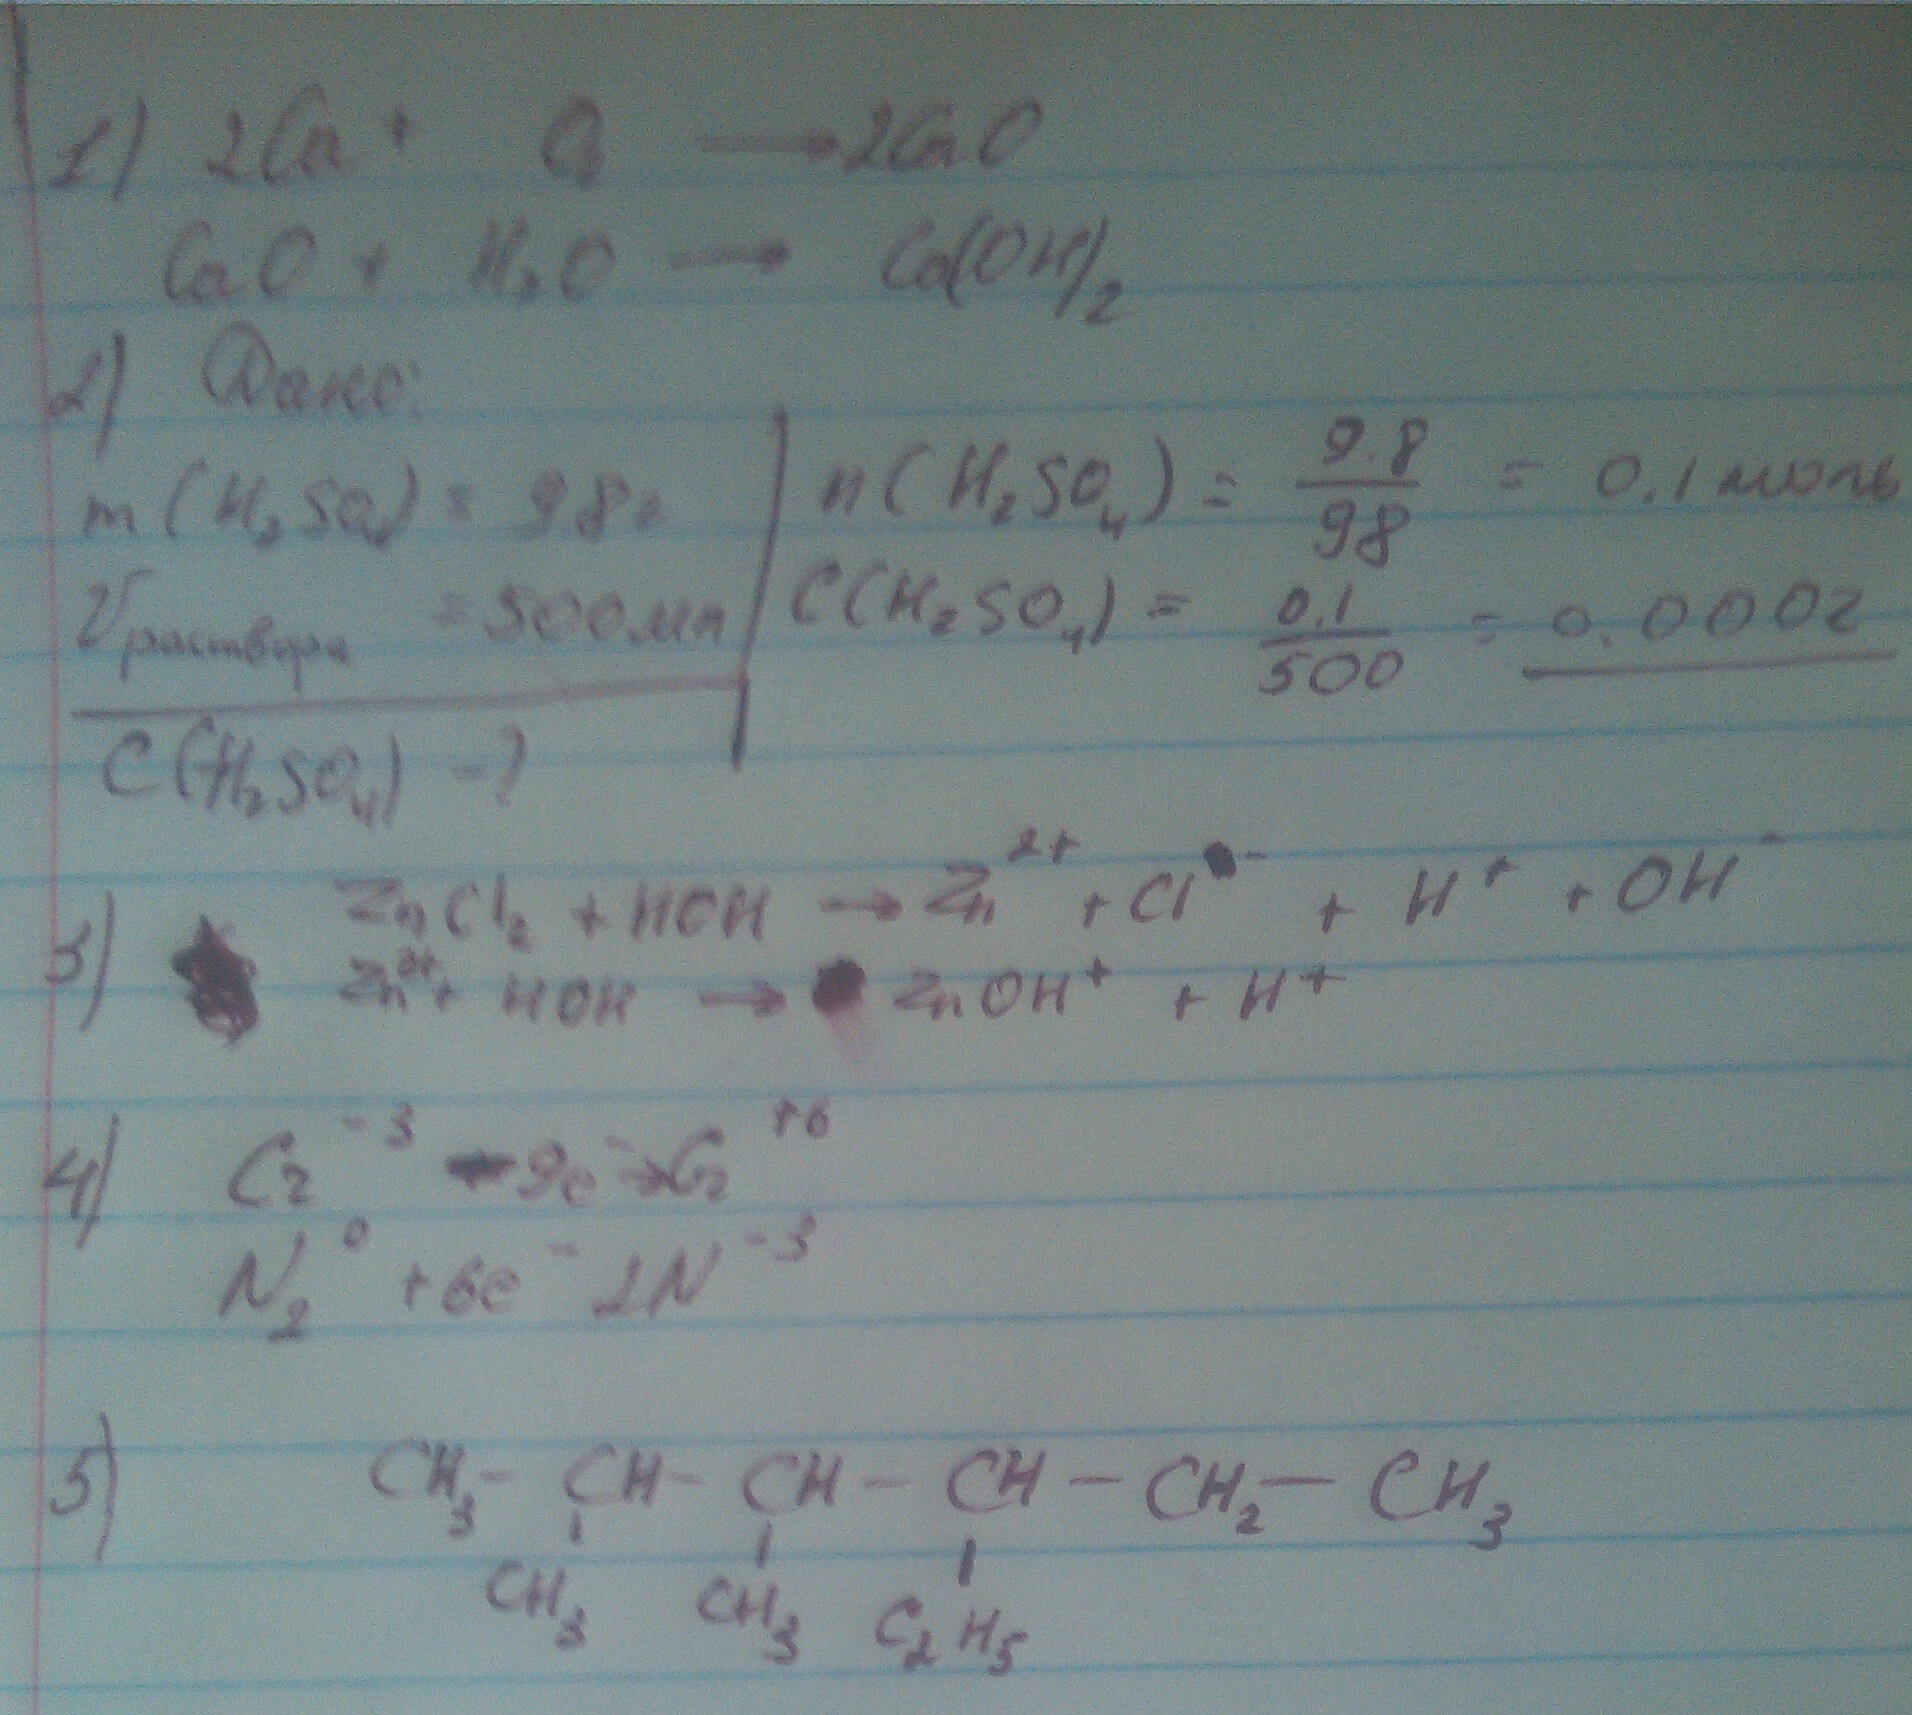 1) 2Ca + O₂ → 2CaO
CaO + H₂O → Ca(OH)₂
2) Дано:
m(H₂SO₄) = 98г
Vраствора = 500мл
C(H₂SO₄) - ?
n(H₂SO₄) = 9.8/98 = 0.1 моль
C(H₂SO₄) = 0.1/500 = 0.0002
3) ZnCl₂ + HOH → Zn²⁺ + Cl⁻ + H⁺ + OH⁻
Zn²⁺ + HOH → ZnOH⁺ + H⁺
4) Cr⁻³ - 9e⁻ → Cr⁺⁶
N₂⁰ + 6e⁻ 2N⁻³
5) CH₃ - CH - CH - CH - CH₂ - CH₃
CH₃ CH₃ C₂H₅